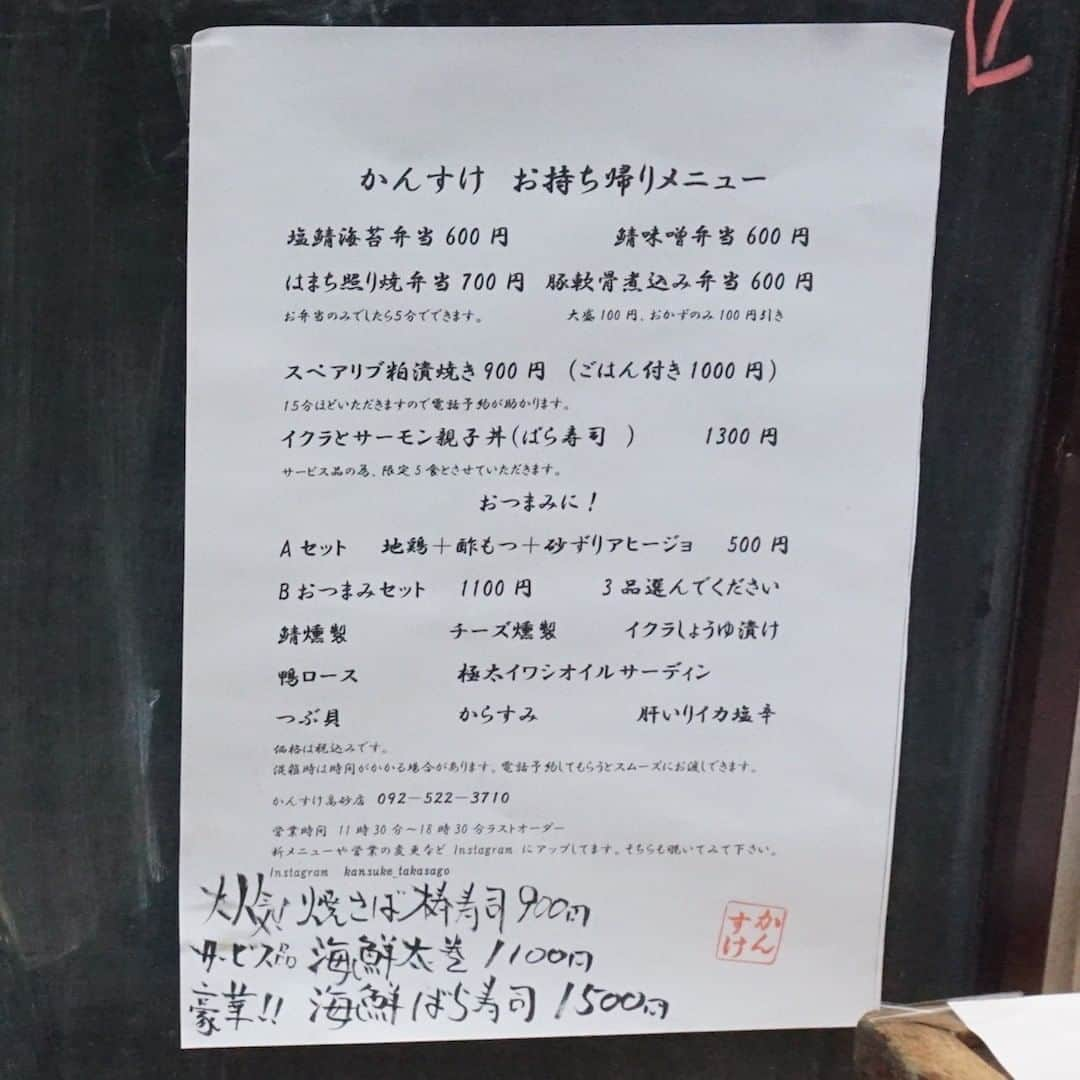 かんすけ お持ち帰りメニュー
塩鯖海苔弁当600円 鯖味噌弁当600円
はまち照り焼弁当700円 豚軟骨煮込み弁当600円
お弁当のみでしたら5分でできます。 大盛100円、おかずのみ100円引き
スペアリブ粕漬焼き900円 (ごはん付き1000円)
15分ほどいただきますので電話予約が助かります。
イクラとサーモン親子丼(ばら寿司 ) 1300円
サービス品の為、限定5食とさせていただきます。
おつまみに!
Aセット 地鶏+酢もつ+砂ずりアヒージョ 500円
Bおつまみセット 1100円 3品選んでください
鯖燻製 チーズ燻製 イクラしょうゆ漬け
鴨ロース 極太イワシオイルサーディン
つぶ貝 からすみ 肝いりイカ塩辛
価格は税込みです。
混雑時は時間がかかる場合があります。電話予約してもらうとスムーズにお渡しできます。
かんすけ高砂店 092-522-3710
営業時間 11時30分~18時30分ラストオーダー
新メニューや営業の変更などInstagramにアップしてます。そちらも覗いてみて下さい。
Instagram kansuke_takasago
大人気! 焼さば棒寿司900円
サービス品 海鮮太巻 1100円
豪華!! 海鮮ばら寿司 1500円
かんすけ